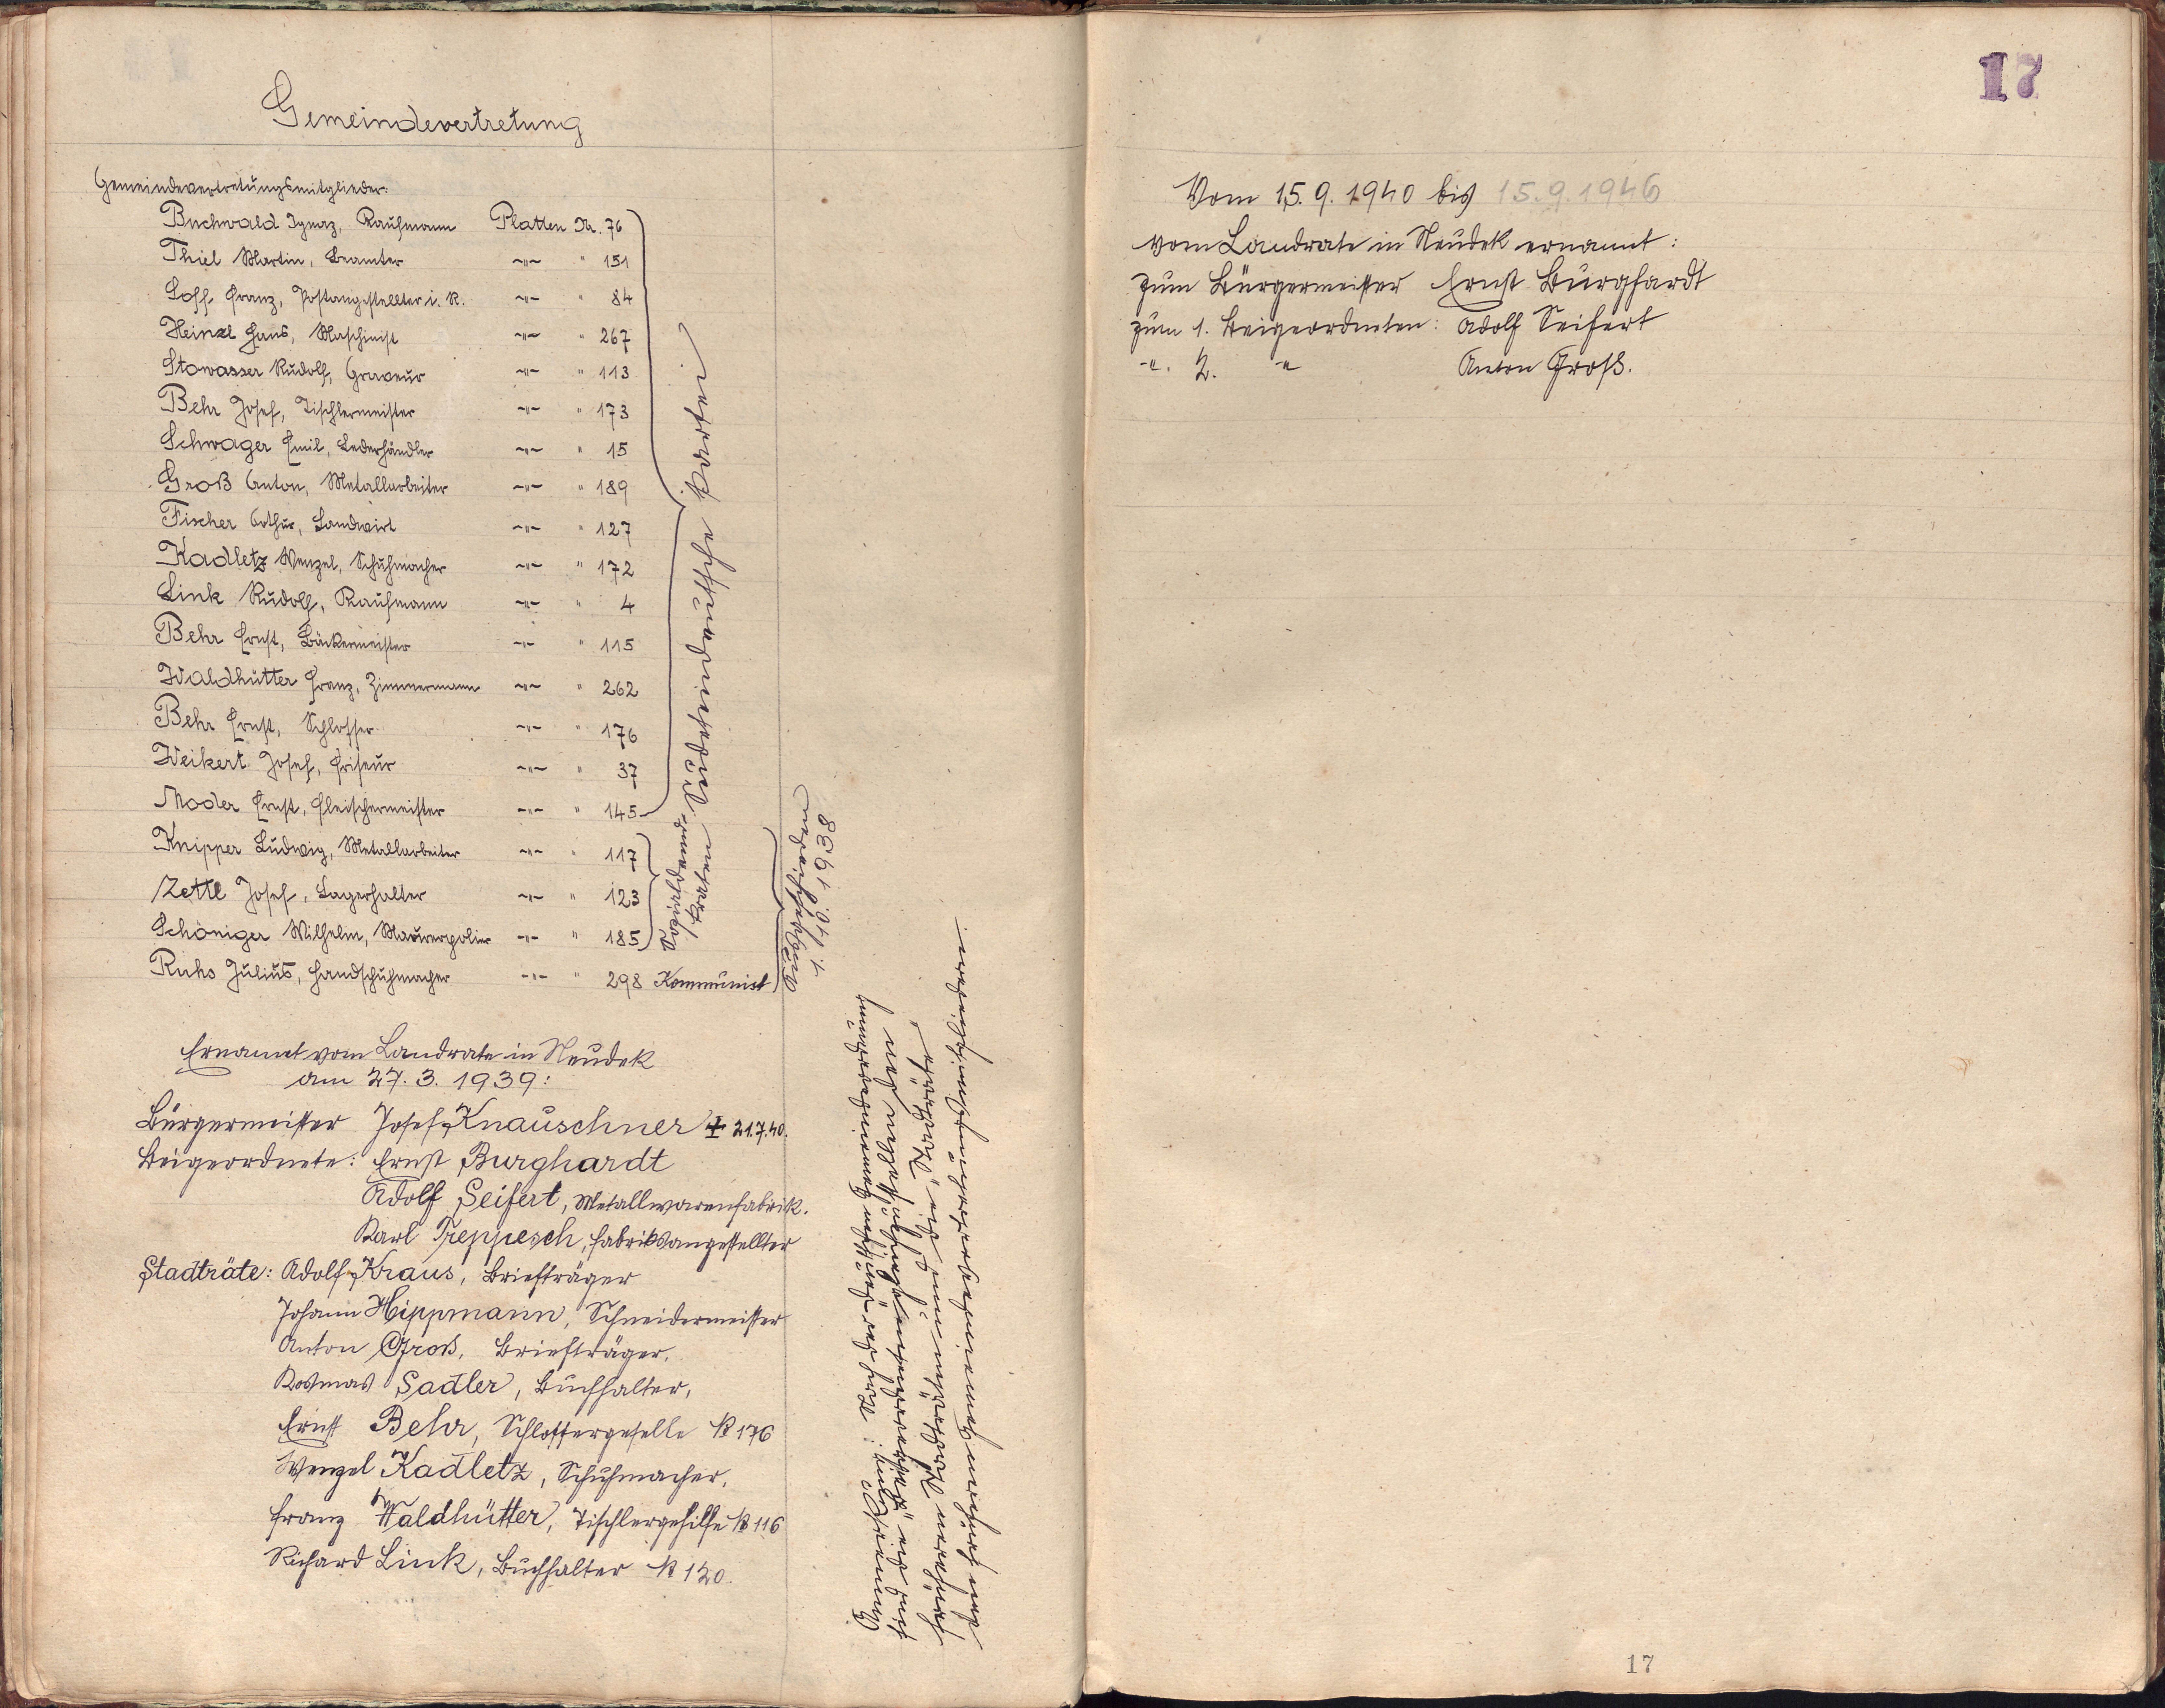 Gemeindevertretung
Gemeindevertretungsmitglieder:
Buchwald Ignaz, Kaufmann Platten Nr. 76
Thiel Martin, Beamter -"- " 151
Loff Franz, Postangestellter i. R. -"- " 84
Heinzl Hans, Maschinist -"- " 267
Stowasser Rudolf, Graveur -"- " 113
Behr Josef, Tischlermeister -"- " 173
Schwager Emil, Lederhändler -"- " 15
Groß Anton, Metallarbeiter -"- " 189
Fischer Arthur, Landwirt -"- " 127
Kadletz Wenzel, Schuhmacher -"- " 172
Link Rudolf, Kaufmann -"- " 4
Behr Ernst, Bäckermeister -"- " 115
Waldhütter Franz, Zimmermann -"- " 262
Behr Ernst, Schlosser -"- " 176
Weikert Josef, Friseur -"- " 37
Moder Ernst, Fleischermeister -"- " 145
Knipper Ludwig, Metallarbeiter -"- " 117
Zettl Josef, Lagerhalter -"- " 123
Schöniger Wilhelm, Maurerpolier -"- " 185
Ruhs Julius, Handschuhmacher -"- " 298 Kommunist
Sudetendeutsche Partei
Sozialdemo-
kraten
Ausgeschieden
1. 10. 1938
Ernannt vom Landrate in Neudek
am 27. 3. 1939:
Bürgermeister Josef Knauschner + 21.7.40.
Beigeordnete: Ernst Burghardt
Adolf Seifert, Metallwarenfabrik.
Karl Treppesch, Fabriksangestellter
Stadträte: Adolf Kraus, Briefträger
Johann Hippmann, Schneidermeister
Anton Groß, Briefträger,
Kosmas Sadler, Buchhalter,
Ernst Behr, Schlossergeselle № 176
Wenzel Kadletz, Schuhmacher,
Franz Waldhütter, Tischlergehilfe № 116
Richard Link, Buchhalter № 120.
Anmerkung: Nach der deutschen Gemeindeordnung
sind die "Beigeordneten" gleichzustellen den
früheren Stadträten und die "Stadträte"
den früheren Gemeindevertretungsmitgliedern.
17
Vom 15. 9. 1940 bis 15. 9. 1946
vom Landrate in Neudek ernannt:
zum Bürgermeister Ernst Burghardt
zum 1. Beigeordneten: Adolf Seifert
-"- 2. -"- Anton Groß.
17